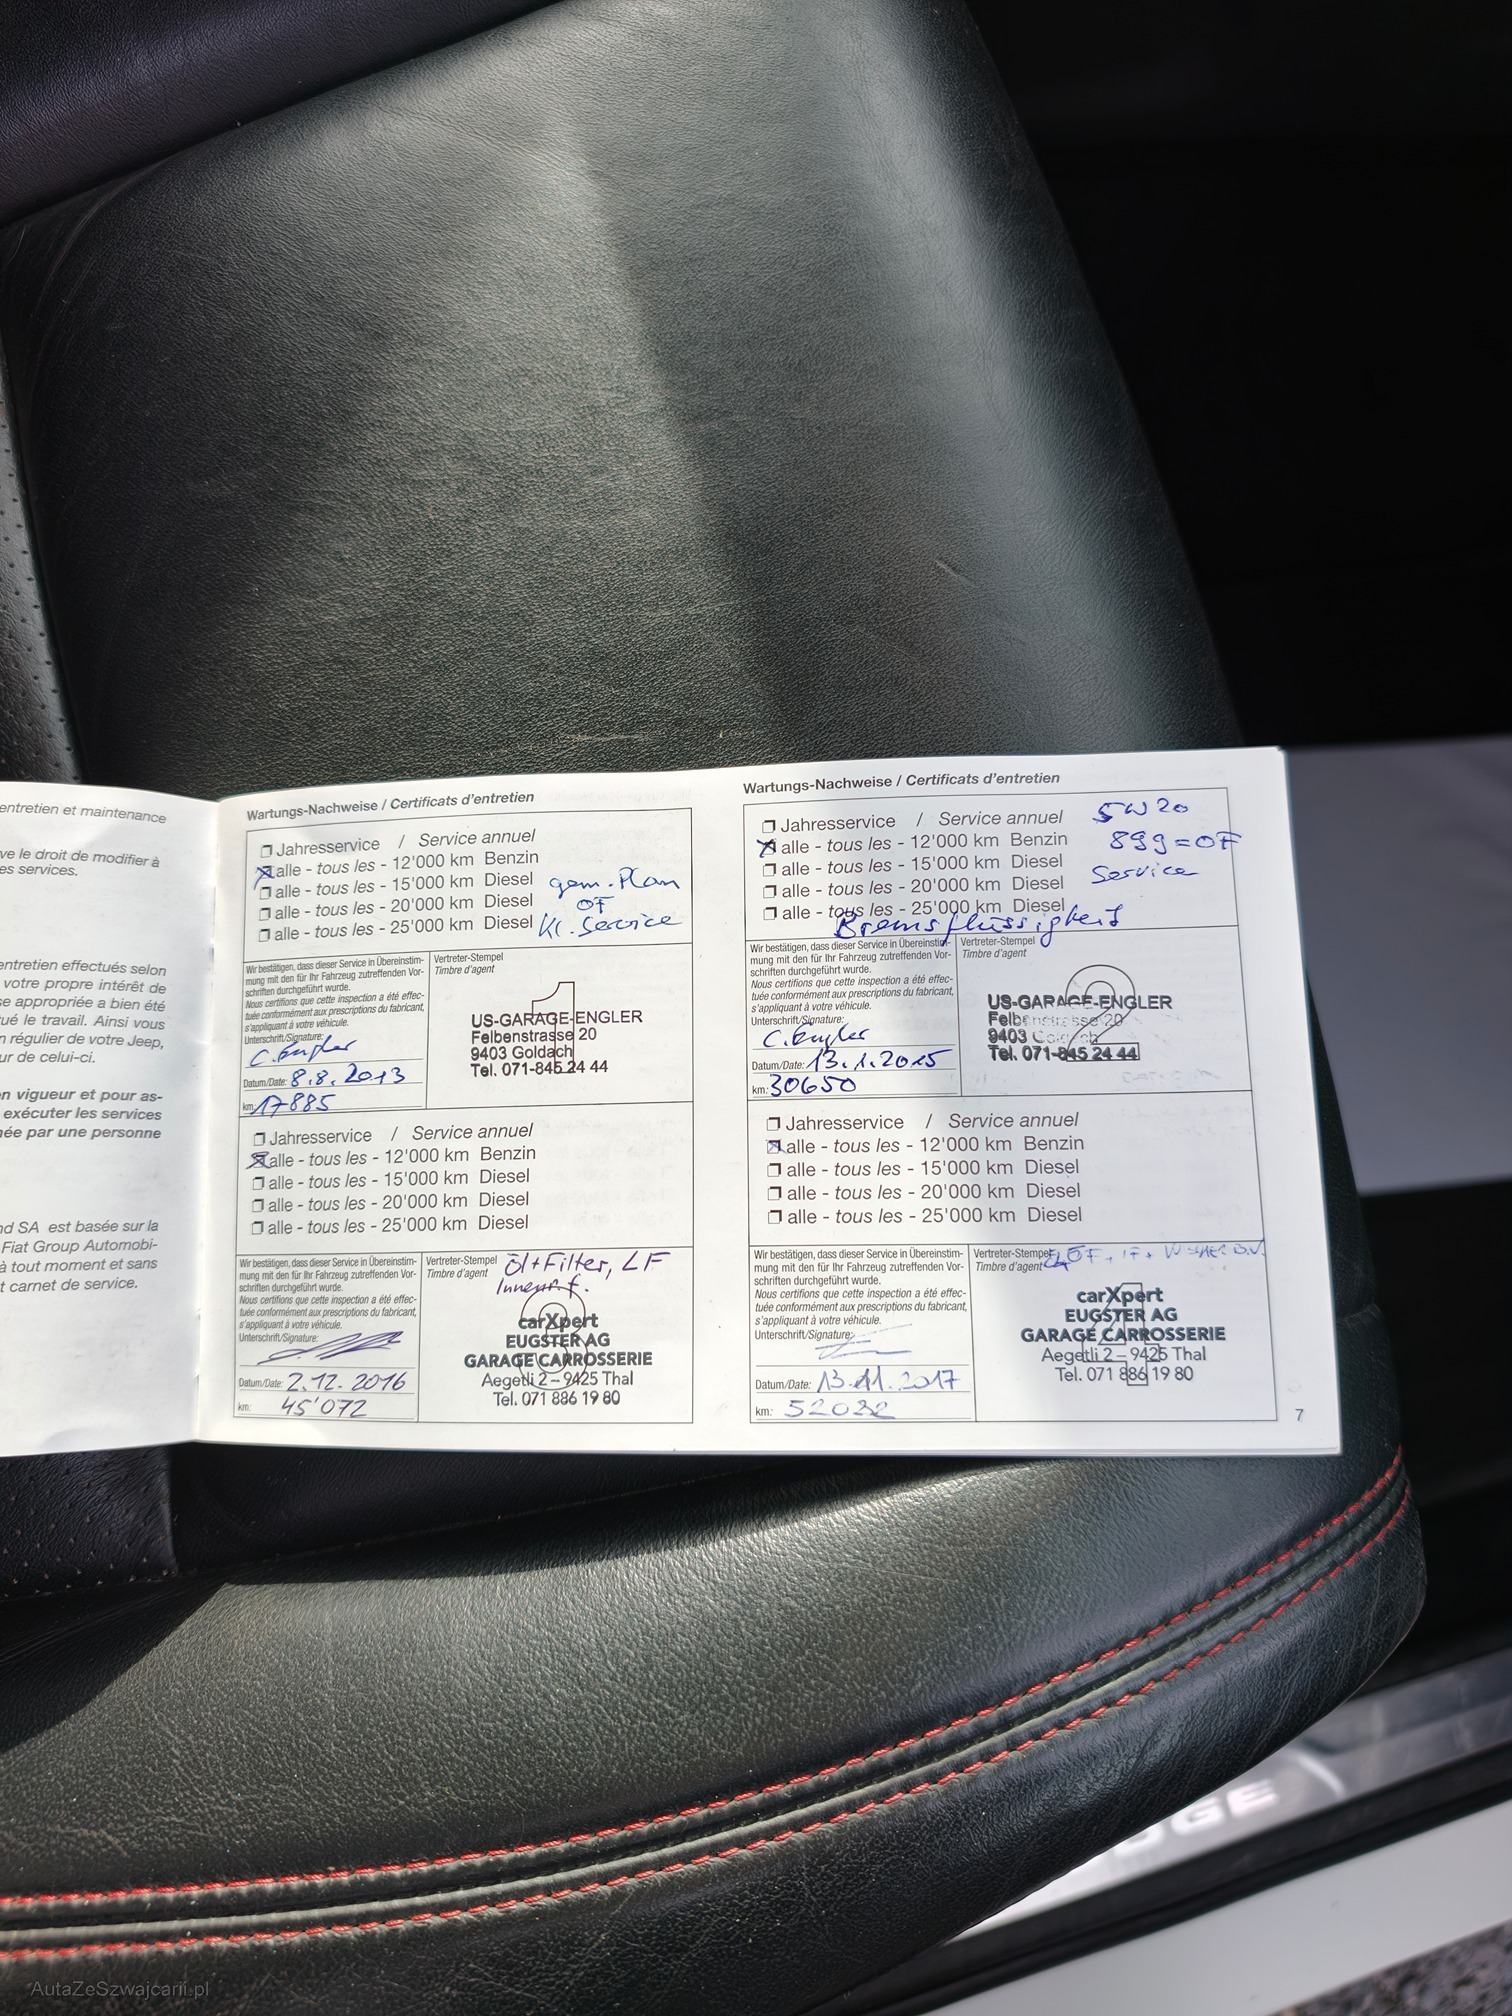 entretien et maintenance
ve le droit de modifier à
es services.
entretien effectués selon
votre propre intérêt de
se appropriée a bien été
tué le travail. Ainsi vous
n régulier de votre Jeep,
ur de celui-ci.
n vigueur et pour as-
exécuter les services
née par une personne
nd SA est basée sur la
Fiat Group Automobi-
à tout moment et sans
t carnet de service.
Wartungs-Nachweise / Certificats d'entretien
Jahresservice / Service annuel
alle - tous les - 12'000 km Benzin
alle - tous les - 15'000 km Diesel
alle - tous les - 20'000 km Diesel
alle - tous les - 25'000 km Diesel
gem. Plan
OF
Kl. Service
Wir bestätigen, dass dieser Service in Übereinstim-
mung mit den für Ihr Fahrzeug zutreffenden Vor-
schriften durchgeführt wurde.
Nous certifions que cette inspection a été effec-
tuée conformément aux prescriptions du fabricant,
s'appliquant à votre véhicule.
Unterschrift/Signature:
C. Engler
Datum/Date: 8.8.2013
km: 17885
Vertreter-Stempel
Timbre d'agent
1
US-GARAGE-ENGLER
Felbenstrasse 20
9403 Goldach
Tel. 071-845 24 44
Jahresservice / Service annuel
alle - tous les - 12'000 km Benzin
alle - tous les - 15'000 km Diesel
alle - tous les - 20'000 km Diesel
alle - tous les - 25'000 km Diesel
Wir bestätigen, dass dieser Service in Übereinstim-
mung mit den für Ihr Fahrzeug zutreffenden Vor-
schriften durchgeführt wurde.
Nous certifions que cette inspection a été effec-
tuée conformément aux prescriptions du fabricant,
s'appliquant à votre véhicule.
Unterschrift/Signature:
Datum/Date: 2.12.2016
km: 45'072
Vertreter-Stempel
Timbre d'agent
Öl+Filter, LF
Innenr. f.
3
carXpert
EUGSTER AG
GARAGE CARROSSERIE
Aegetli 2 – 9425 Thal
Tel. 071 886 19 80
Wartungs-Nachweise / Certificats d'entretien
Jahresservice / Service annuel
alle - tous les - 12'000 km Benzin
alle - tous les - 15'000 km Diesel
alle - tous les - 20'000 km Diesel
alle - tous les - 25'000 km Diesel
5W20
899=OF
Service
Bremsflüssigkeit
Wir bestätigen, dass dieser Service in Übereinstim-
mung mit den für Ihr Fahrzeug zutreffenden Vor-
schriften durchgeführt wurde.
Nous certifions que cette inspection a été effec-
tuée conformément aux prescriptions du fabricant,
s'appliquant à votre véhicule.
Unterschrift/Signature:
C. Engler
Datum/Date: 13.1.2015
km: 30650
Vertreter-Stempel
Timbre d'agent
2
US-GARAGE-ENGLER
Felbenstrasse 20
9403 Goldach
Tel. 071-845 24 44
Jahresservice / Service annuel
alle - tous les - 12'000 km Benzin
alle - tous les - 15'000 km Diesel
alle - tous les - 20'000 km Diesel
alle - tous les - 25'000 km Diesel
Wir bestätigen, dass dieser Service in Übereinstim-
mung mit den für Ihr Fahrzeug zutreffenden Vor-
schriften durchgeführt wurde.
Nous certifions que cette inspection a été effec-
tuée conformément aux prescriptions du fabricant,
s'appliquant à votre véhicule.
Unterschrift/Signature:
Datum/Date: 13.11.2017
km:
Vertreter-Stempel
Timbre d'agent
4
carXpert
EUGSTER AG
GARAGE CARROSSERIE
Aegetli 2 – 9425 Thal
Tel. 071 886 19 80
7
DGE
AutaZeSzwajcarii.pl